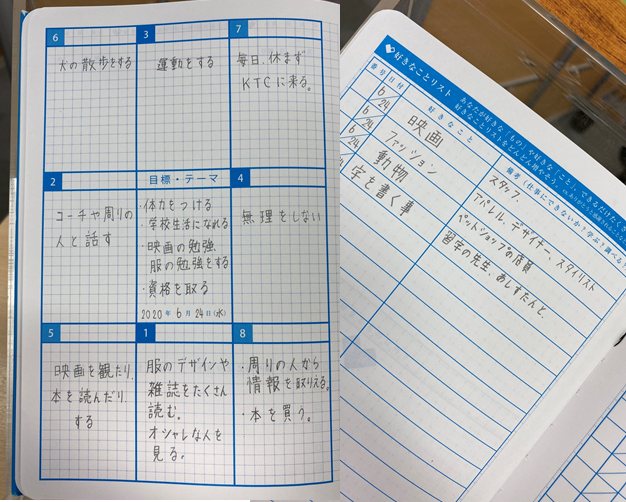 6
犬の散歩をする
3
運動をする
7
毎日、休まず
KTCに来る。
2
コーチや周りの
人と話す
目標・テーマ
・体力をつける
・学校生活になれる
・映画の勉強、
服の勉強をする
・資格を取る
2020年6月24日(水)
4
無理をしない
5
映画を観たり、
本を読んだり
する
1
服のデザインや
雑誌をたくさん
読む。
オシャレな人を
見る。
8
・周りの人から
情報を取り入る。
・本を買う。
好きなことリスト
あなたが好きな「もの」や好きな「こと」、できるだけたくさ
好きなことリストをどんどん増やそう。
番号
日付
好きなこと
備考（仕事にできないか？学ぶ？調べる？
6/24
映画
スタッフ、
6/24
ファッション
アパレル、デザイナー、スタイリスト
6/24
動物
ペットショップの店員
字を書く事
習字の先生、あしすたんと、